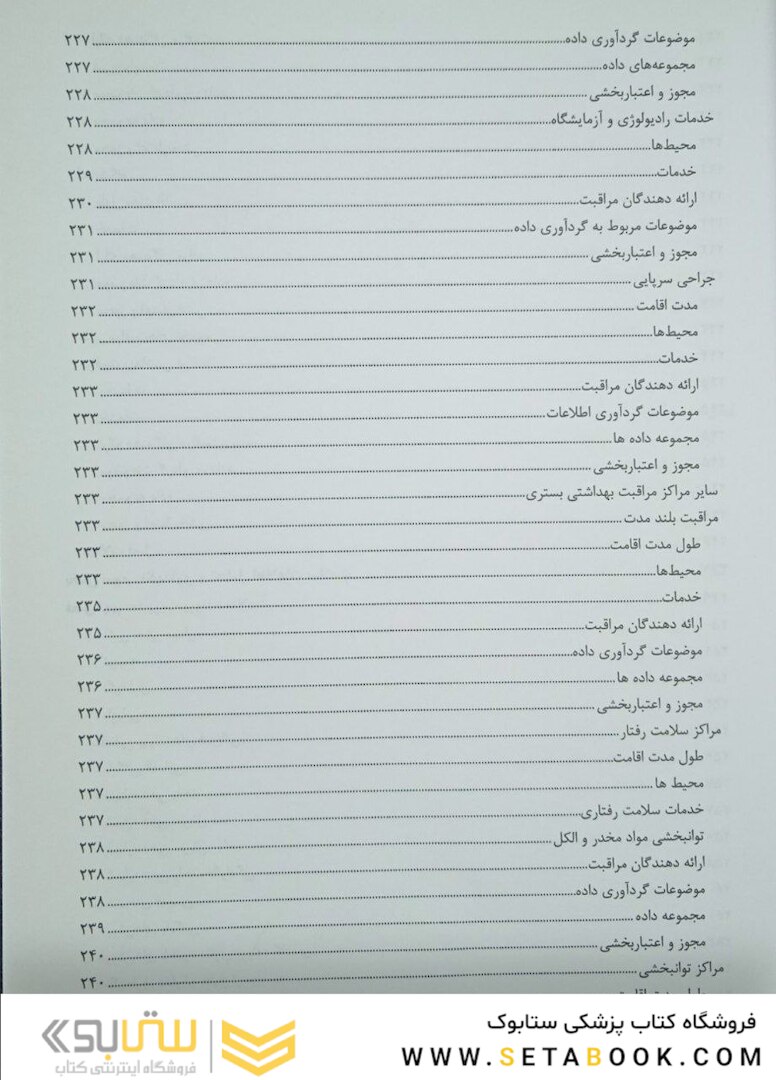 موضوعات گردآوری داده ۲۲۷
مجموعه‌های داده ۲۲۷
مجوز و اعتباربخشی ۲۲۸
خدمات رادیولوژی و آزمایشگاه ۲۲۸
محیط‌ها ۲۲۸
خدمات ۲۲۹
ارائه دهندگان مراقبت ۲۳۰
موضوعات مربوط به گردآوری داده ۲۳۱
مجوز و اعتباربخشی ۲۳۱
جراحی سرپایی ۲۳۱
مدت اقامت ۲۳۲
محیط‌ها ۲۳۲
خدمات ۲۳۲
ارائه دهندگان مراقبت ۲۳۳
موضوعات گردآوری اطلاعات ۲۳۳
مجموعه داده ها ۲۳۳
مجوز و اعتباربخشی ۲۳۳
سایر مراکز مراقبت بهداشتی بستری ۲۳۳
مراقبت بلند مدت ۲۳۳
طول مدت اقامت ۲۳۳
محیط‌ها ۲۳۳
خدمات ۲۳۵
ارائه دهندگان مراقبت ۲۳۵
موضوعات گردآوری داده ۲۳۶
مجموعه داده ها ۲۳۶
مجوز و اعتباربخشی ۲۳۷
مراکز سلامت رفتار ۲۳۷
طول مدت اقامت ۲۳۷
محیط ها ۲۳۷
خدمات سلامت رفتاری ۲۳۷
توانبخشی مواد مخدر و الکل ۲۳۸
ارائه دهندگان مراقبت ۲۳۸
موضوعات گردآوری داده ۲۳۸
مجموعه داده ۲۳۹
مجوز و اعتباربخشی ۲۴۰
مراکز توانبخشی ۲۴۰
فروشگاه کتاب پزشکی ستابوک
WWW.SETABOOK.COM
ستابوک
فروشگاه اینترنتی کتاب